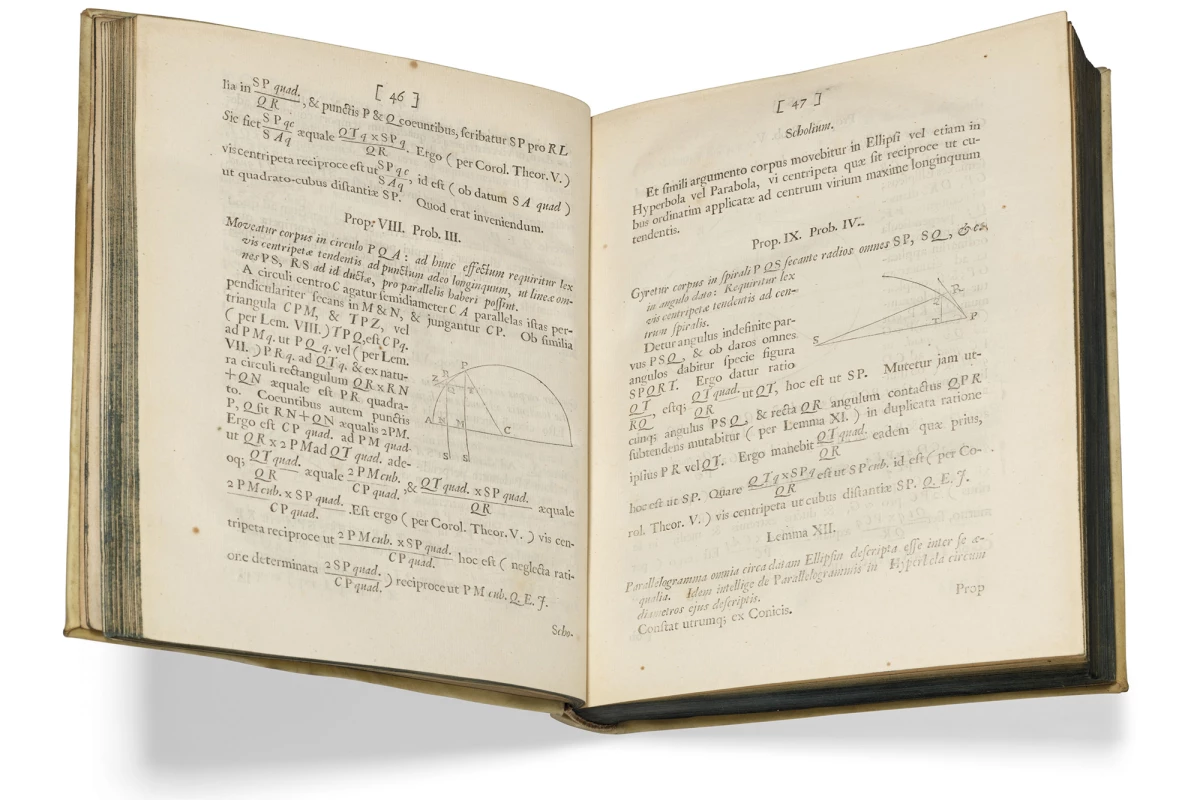 [ 46 ]
lia in SP quad. / QR , & punctis P & Q coeuntibus, scribatur SP pro RL
Sic fiet SPqc / SAq æquale QTq x SPq. / QR Ergo ( per Corol. Theor. V. )
vis centripeta reciproce est ut SPqc / SAq , id est ( ob datum SA quad )
ut quadrato-cubus distantiæ SP. Quod erat inveniendum.
Prop. VIII. Prob. III.
Moveatur corpus in circulo PQA : ad hunc effectum requiritur lex
vis centripetæ tendentis ad punctum adeo longinquum, ut lineæ om-
nes PS, RS ad id ductæ, pro parallelis haberi possint.
A circuli centro C agatur semidiameter CA parallelas istas per-
pendiculariter secans in M & N, & jungantur CP. Ob similia
triangula CPM, & TPZ, vel
( per Lem. VIII. ) TPQ, est CPq.
ad PMq. ut PQq. vel ( per Lem.
VII. ) PRq. ad QTq. & ex natu-
ra circuli rectangulum QR x RN
+ QN æquale est PR quadra-
to. Coeuntibus autem punctis
P, Q fit RN + QN æqualis 2PM.
Ergo est CP quad. ad PM quad-
ut QR x 2PM ad QT quad. ade-
oq; QT quad. / QR æquale 2PM cub. / CP quad. , & QT quad. x SP quad. / QR æquale
2PM cub. x SP quad. / CP quad. . Est ergo ( per Corol. Theor. V. ) vis cen-
tripeta reciproce ut 2PM cub. x SP quad. / CP quad. hoc est ( neglecta rati-
one determinata 2SP quad. / CP quad. ) reciproce ut PM cub. Q. E. J.
Scho-
Z R P
Q T
A N M C
S S
[ 47 ]
Scholium.
Et simili argumento corpus movebitur in Ellipsi vel etiam in
Hyperbola vel Parabola, vi centripeta quæ sit reciproce ut cu-
bus ordinatim applicatæ ad centrum virium maxime longinquum
tendentis.
Prop. IX. Prob. IV.
Gyretur corpus in spirali PQS secante radios omnes SP, SQ, &c.
in angulo dato: Requiritur lex
vis centripetæ tendentis ad cen-
trum spiralis.
Detur angulus indefinite par-
vus PSQ, & ob datos omnes
angulos dabitur specie figura
SPQRT. Ergo datur ratio
QT / RQ , estq; QT quad. / QR ut QT, hoc est ut SP. Mutetur jam ut-
cunq; angulus PSQ, & recta QR angulum contactus QPR
subtendens mutabitur ( per Lemma XI. ) in duplicata ratione
ipsius PR vel QT. Ergo manebit QT quad. / QR eadem quæ prius,
hoc est ut SP. Quare QTq x SPq / QR est ut SP cub. id est ( per Co-
rol. Theor. V. ) vis centripeta ut cubus distantiæ SP. Q. E. J.
Lemma XII.
Parallelogramma omnia circa datam Ellipsin descripta esse inter se æ-
qualia. Idem intellige de Parallelogrammis in Hyperbola circum
diametros ejus descriptis.
Constat utrumq; ex Conicis.
Prop
R
Q
T P
S